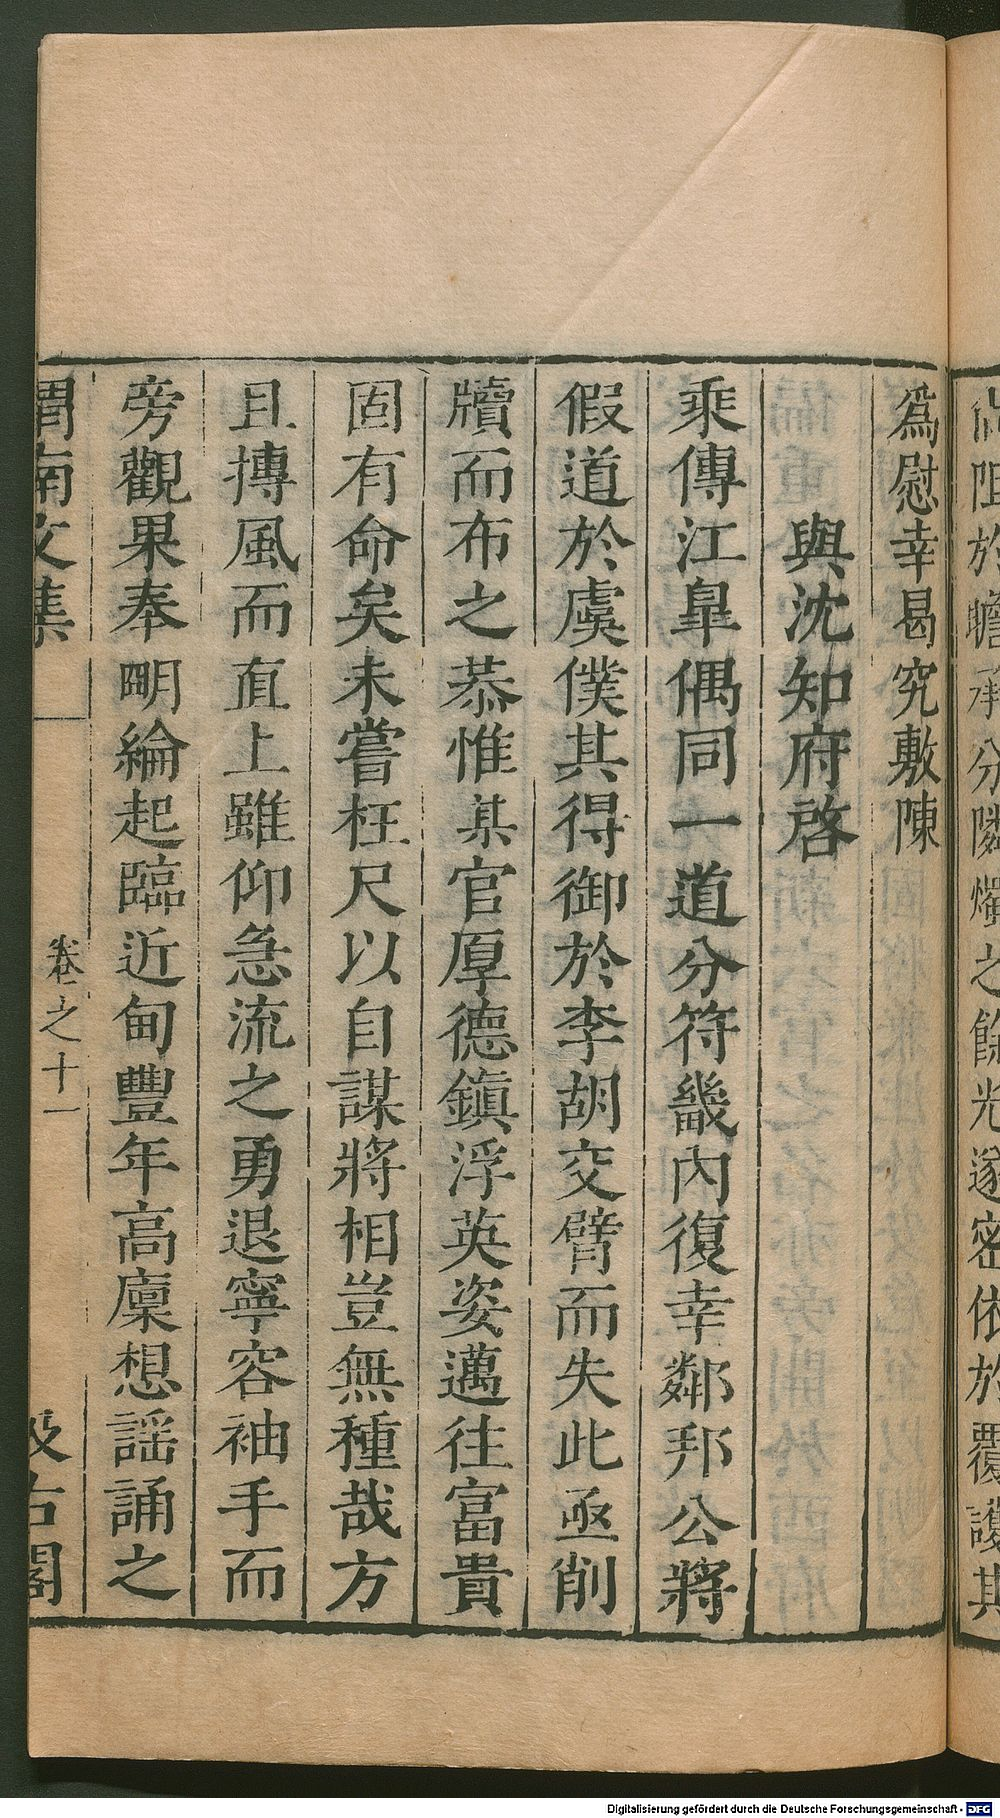 阻於蟾承分隣燭之餘光遂密依於覆護其
爲慰幸曷究敷陳
與沈知府啓
乘傳江臯偶同一道分符畿內復幸鄰邦公將
假道於虞僕其得御於李胡交臂而失此亟削
牘而布之恭惟某官厚德鎭浮英姿邁往富貴
固有命矣未嘗枉尺以自謀將相豈無種哉方
且摶風而直上雖仰急流之勇退寧容袖手而
旁觀果奉明綸起臨近甸豐年高廩想謡誦之
渭南文集
卷之十一
汲古閣
Digitalisierung gefördert durch die Deutsche Forschungsgemeinschaft - DFG